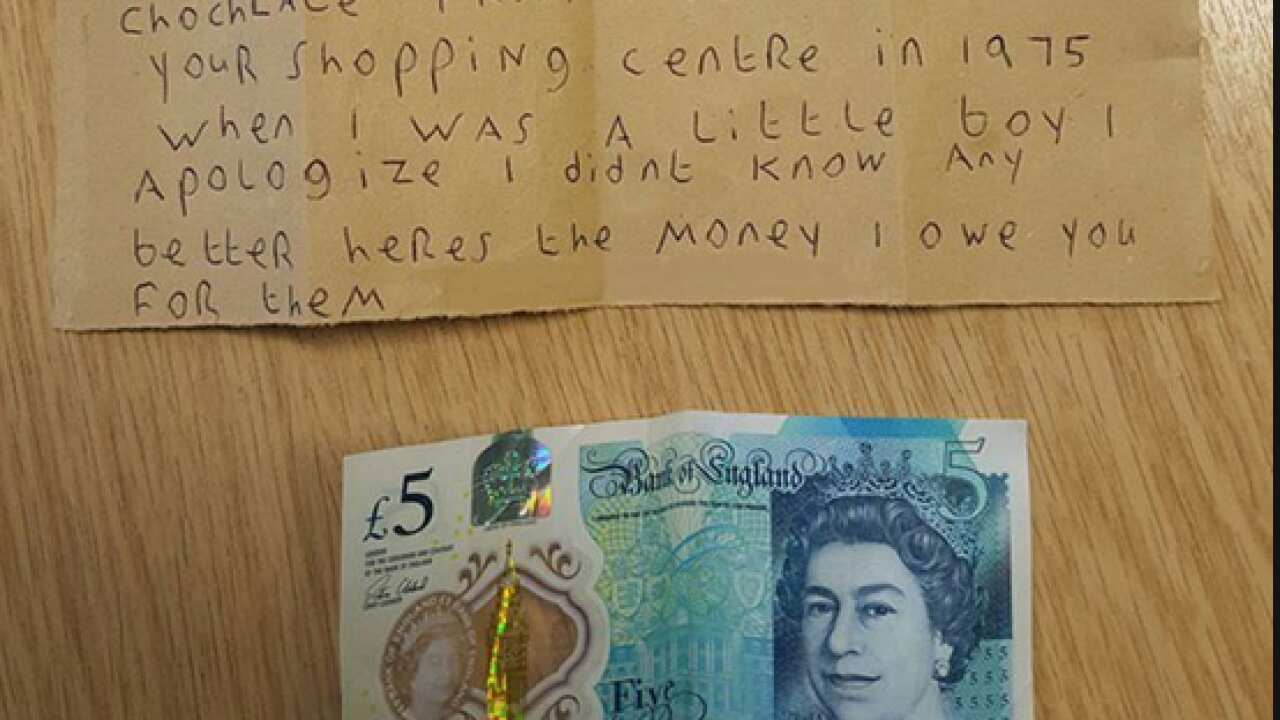 chochLate
your shopping centre in 1975
when I was A Little boy I
Apologize I didnt know Any
better heres the money I owe you
for them
£5
Bank of England
5
Five